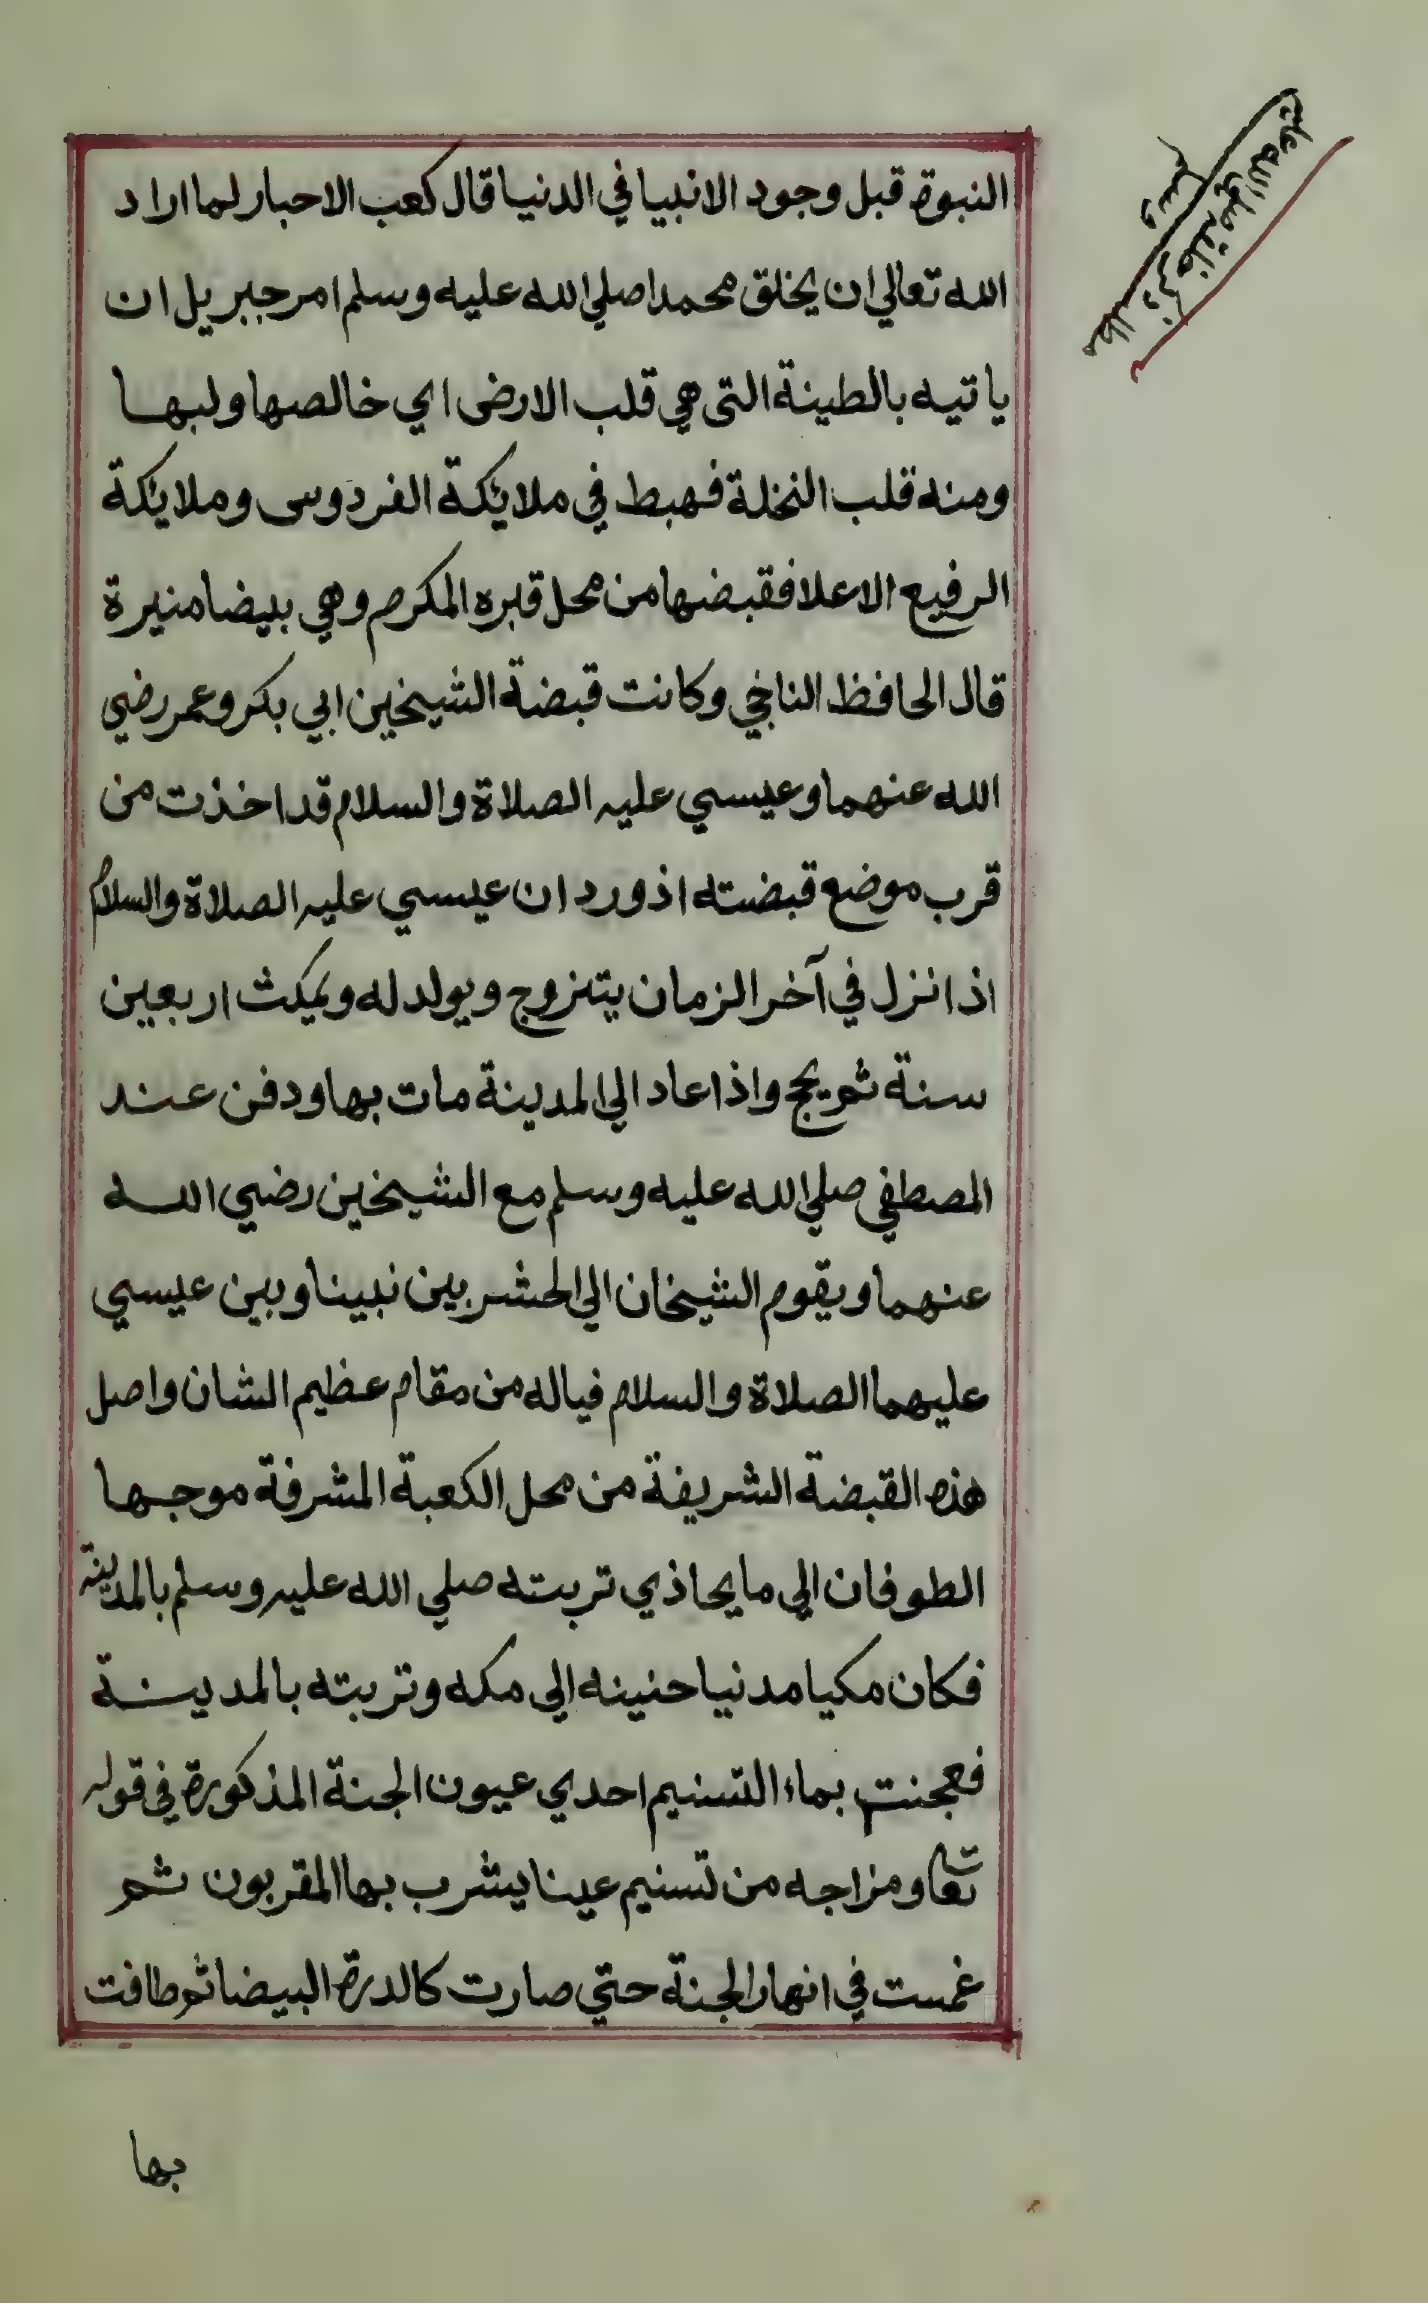 النبوة قبل وجود الانبيا في الدنيا قال كعب الاحبار لما اراد
الله تعالي ان يخلق محمدا صلي الله عليه وسلم امر جبريل ان
ياتيه بالطينة التي هي قلب الارض اي خالصها ولبها
ومنه قلب النخلة فهبط في ملائكة الفردوس وملايكة
الرفيع الاعلا فقبضها من محل قبره المكرم وهي بيضا منيرة
قال الحافظ الناجي وكانت قبضة الشيخين ابي بكر وعمر رضي
الله عنهما وعيسي عليه الصلاة والسلام قد اخذت من
قرب موضع قبضته اذ ورد ان عيسي عليه الصلاة والسلام
اذا نزل في آخر الزمان يتزوج ويولد له ويمكث اربعين
سنة ثم يحج واذا عاد الي المدينة مات بها ودفن عند
المصطفي صلي الله عليه وسلم مع الشيخين رضي الله
عنهما ويقوم الشيخان الي الحشر بين نبينا وبين عيسي
عليهما الصلاة والسلام فياله من مقام عظيم الشان واصل
هذه القبضة الشريفة من محل الكعبة المشرفة موجها
الطوفان الي ما يحاذي تربته صلي الله عليه وسلم بالمدينة
فكان مكيا مدنيا حنينه الي مكه وتربته بالمدينة
فعجنت بماء التسنيم احدي عيون الجنة المذكورة في قوله
تعا ومزاجه من تسنيم عينا يشرب بها المقربون ثم
غمست في انهار الجنة حتي صارت كالدرة البيضا ثم طافت
بها
صلي الله عليه
وسلم